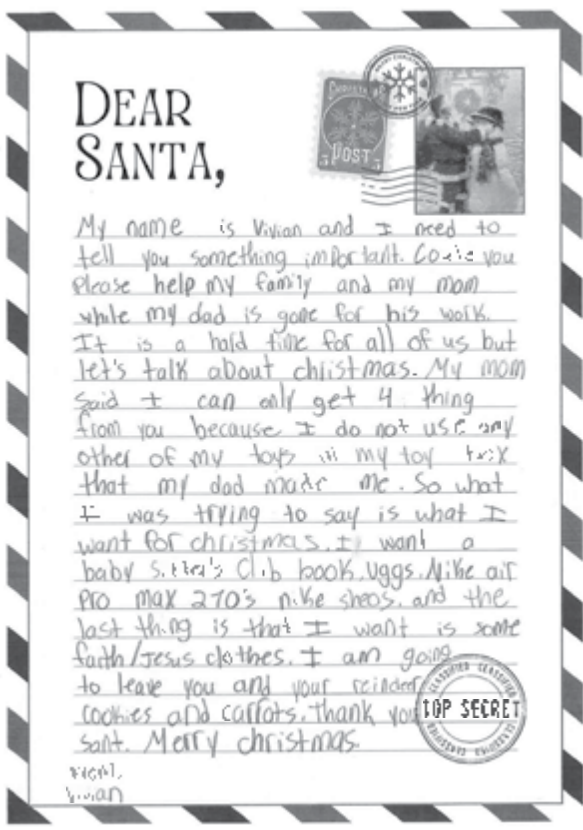 DEAR
SANTA,
CHRISTMAS
POST
My name is Vivian and I need to
tell you something important. Could you
Please help my family and my mom
while my dad is gone for his work.
It is a hard time for all of us but
let's talk about christmas. My mom
said I can only get 4 thing
from you because I do not use any
other of my toys in my toy box
that my dad made me. So what
I was trying to say is what I
want for christmas. I want a
baby Sitter's Club book, Uggs. Nike air
pro max 270's nike sheos. and the
last thing is that I want is some
faith/Jesus clothes. I am going
to leave you and your reinder
cookies and carrots. thank you
sant. Merry christmas.
CLASSIFIED CLASSIFIED
TOP SECRET
CLASSIFIED CLASSIFIED
Vivian